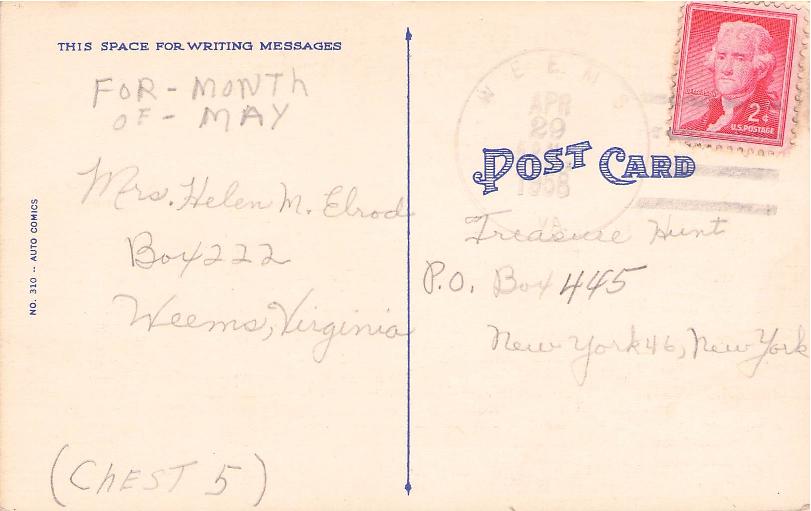 THIS SPACE FOR WRITING MESSAGES
FOR - MONTH
OF - MAY
Mrs. Helen M. Elrod
Box 222
Weems, Virginia
(CHEST 5)
NO. 310 -- AUTO COMICS
WEEMS
APR
29
1958
VA.
2¢
U.S. POSTAGE
POST CARD
Treasure Hunt
P.O. Box 445
New York 46, New York